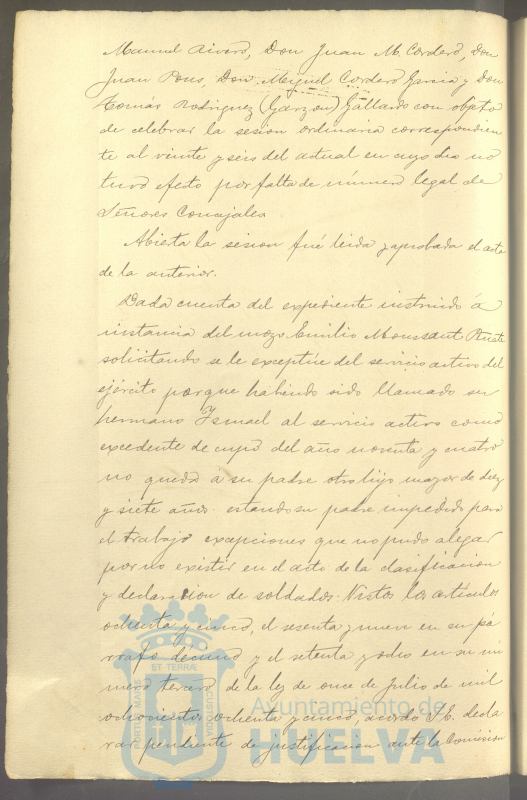 Manuel Alvaro, Don Juan M. Cordero, Don
Juan Pons, Don Miguel Cordero Garcia y Don
Tomás Rodriguez (Garzon) Gallardo con objeto
de celebrar la sesion ordinaria correspondien
te al veinte y seis del actual en cuyo dia no
tuvo efecto por falta de número legal de
Señores Concejales.
Abierta la sesion fué leida y aprobada el acta
de la anterior.
Dada cuenta del expediente instruido á
instancia del mozo Emilio Moussaut
solicitando se le exceptúe del servicio activo del
ejército porque habiendo sido llamado su
hermano Ismael al servicio activo como
excedente de cupo del año noventa y cuatro
no quedó a su padre otro hijo mayor de diez
y siete años estando su padre impedido para
el trabajo excepciones que no pudo alegar
por no existir en el acto de la clasificacion
y declaracion de soldados. Vistos los artículos
ochenta y cinco, el sesenta y nueve en su pá
rrafo décimo y el setenta y ocho en su nú
mero tercero de la ley de once de Julio de mil
ochocientos ochenta y cinco, acordó S.E. decla
rar pendiente de justificacion ante la Comision
Ayuntamiento de
HUELVA
PORTUS MARIS
ET TERRÆ
CUSTODIA